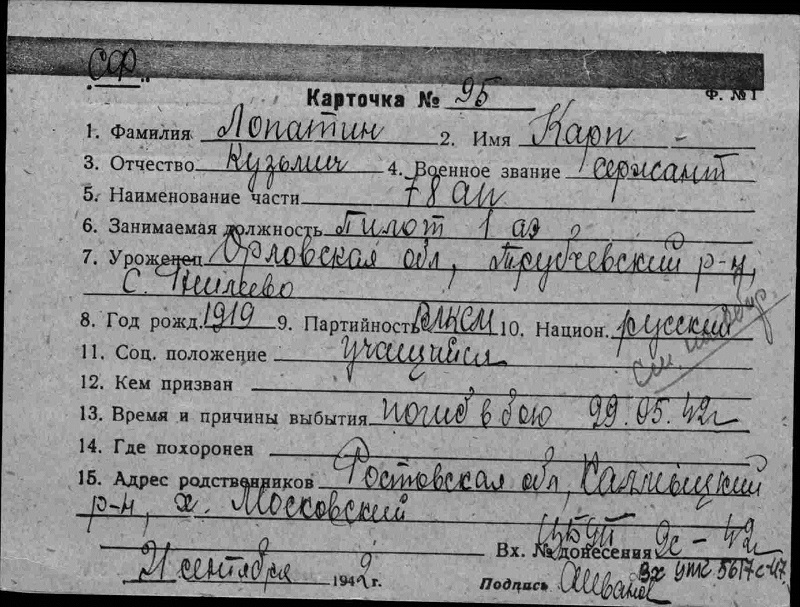 "СФ"
Карточка № 95
Ф. №1
1. Фамилия Лопатин 2. Имя Карп
3. Отчество Кузьмич 4. Военное звание сержант
5. Наименование части 78 ап
6. Занимаемая должность Пилот 1 аэ
7. Уроженец Орловская обл, Трубчевский р-н,
с.
8. Год рожд. 1919 9. Партийность ВЛКСМ 10. Национ. русский
11. Соц. положение учащийся
12. Кем призван
13. Время и причины выбытия погиб в бою 29.05.42г
14. Где похоронен
15. Адрес родственников Ростовская обл, Калмыцкий
р-н, х. Московский
Вх. № донесения 9с-42г
21 сентября 1942 г.
Вх 5617с-47
Подпись